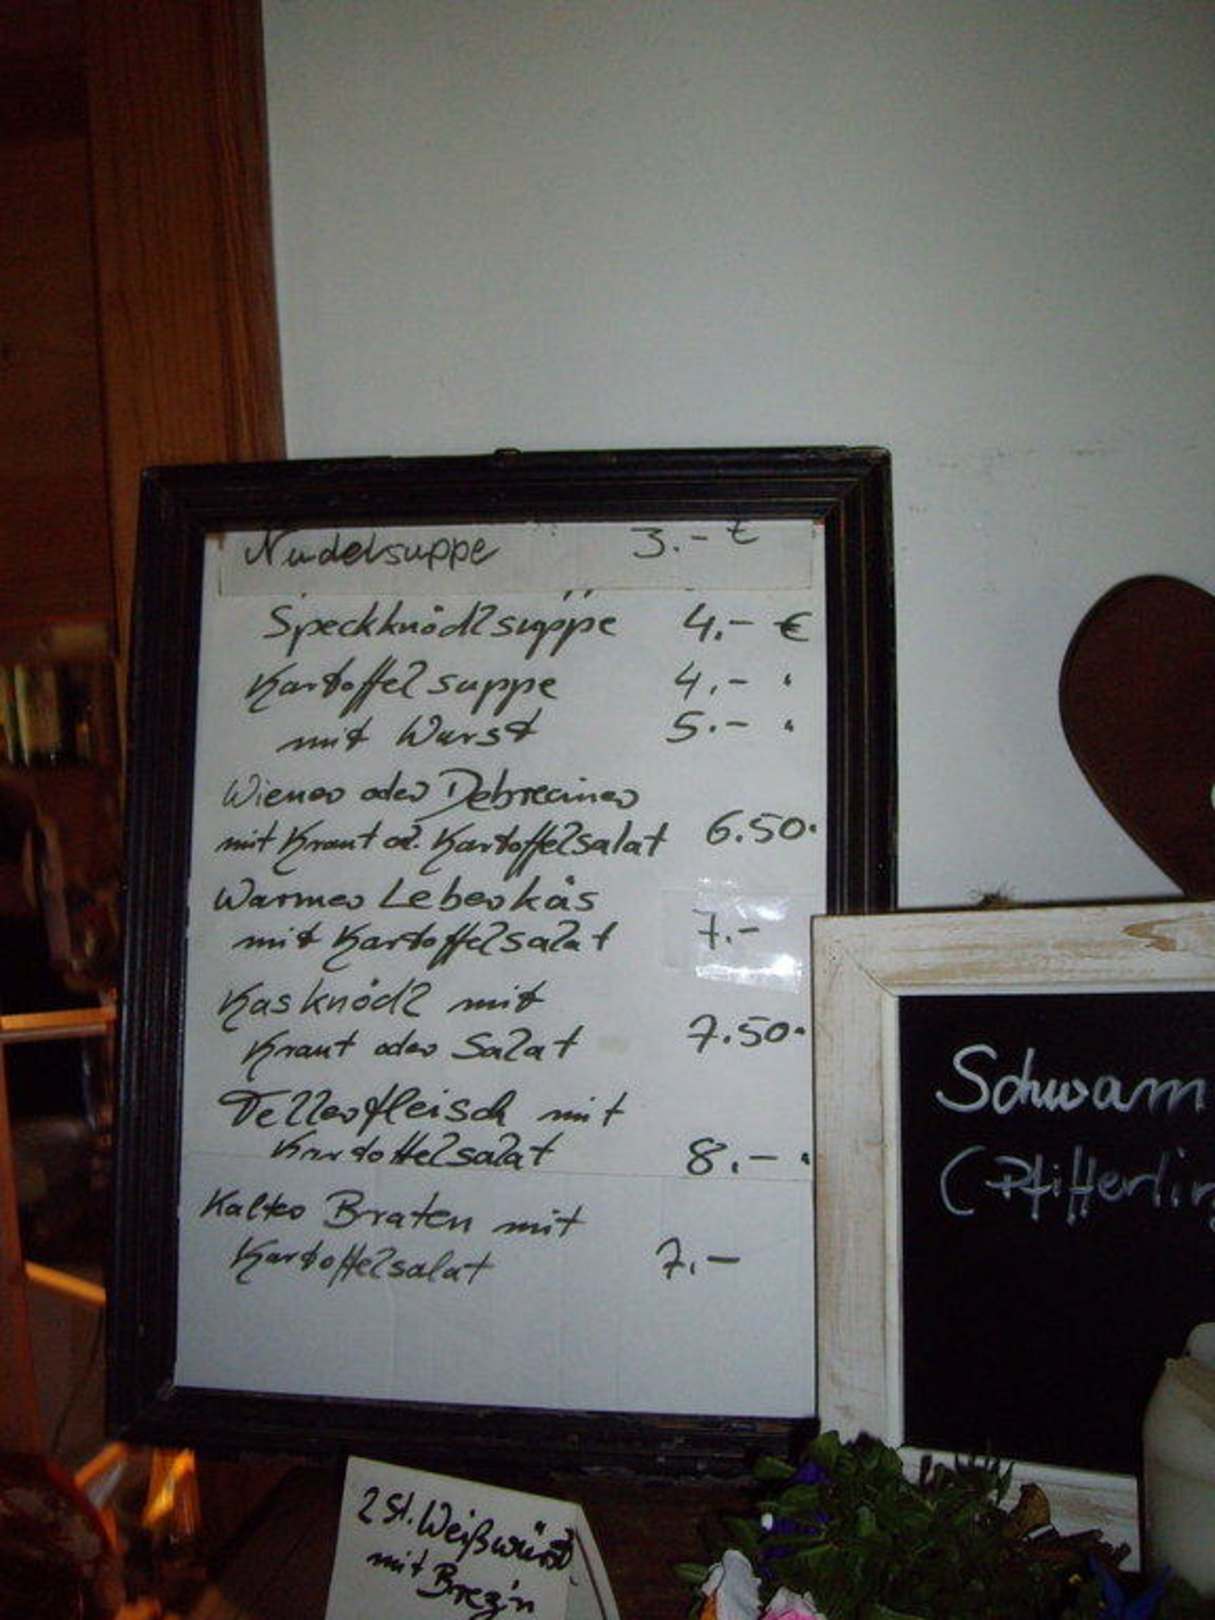 Nudelsuppe 3.- €
Speckknödlsuppe 4.- €
Kartoffelsuppe 4.- "
mit Wurst 5.- "
Wiener oder Debreciner
mit Kraut od. Kartoffelsalat 6.50.
Warmer Leberkäs
mit Kartoffelsalat 7.-
Kasknödl mit
Kraut oder Salat 7.50.
Tellerfleisch mit
Kartoffelsalat 8.- "
Kalter Braten mit
Kartoffelsalat 7.-
Schwam
(Pfifferling
2 St. Weißwürst
mit Brez'n